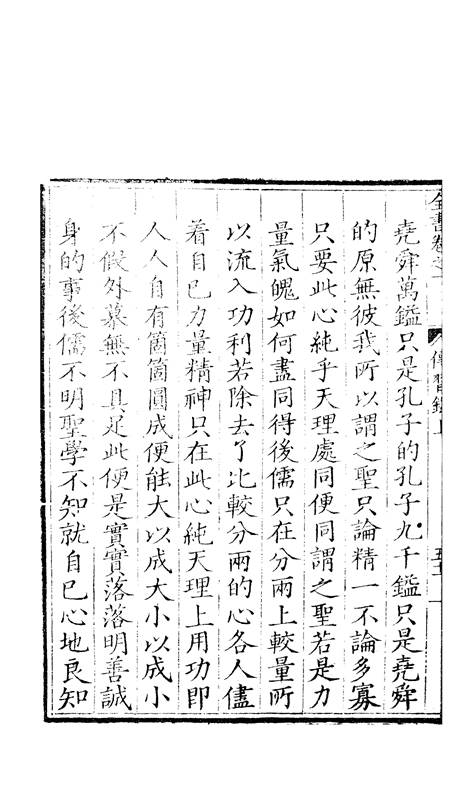 堯舜萬鎰只是孔子的孔子九千鎰只是堯舜
的原無彼我所以謂之聖只論精一不論多寡
只要此心純乎天理處同便同謂之聖若是力
量氣魄如何盡同得後儒只在分兩上較量所
以流入功利若除去了比較分兩的心各人儘
着自己力量精神只在此心純天理上用功即
人人自有箇箇圓成便能大以成大小以成小
不假外慕無不具足此便是實實落落明善誠
身的事後儒不明聖學不知就自己心地良知